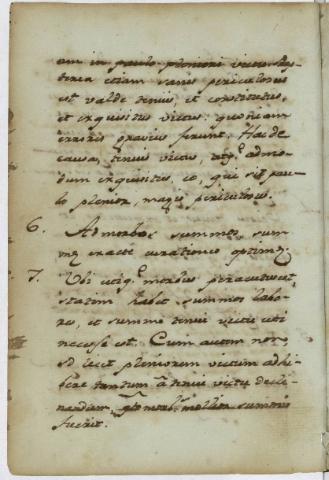 am in paulo pleniori victu. Prop-
terea etiam sanis periculosus
est valde tenuis, et constitutus,
et exquisitus victus: quoniam
errores gravius ferunt. Hac de
causa, tenuis victus, atq. admo-
dum exquisitus, eo, qui sit pau-
lo plenior, magis periculosus.
6. Ad morbos summos, sum-
mę exactę curationes optimę.
7. Ubi utiq. morbus peracutus est,
statim habet summos labo-
res, et summe tenui victu uti
necesse est. Cum autem non,
sed licet pleniorem victum adhi-
bere tantum à tenui victu decli-
nandum, morb. mollior summis
fuerit.